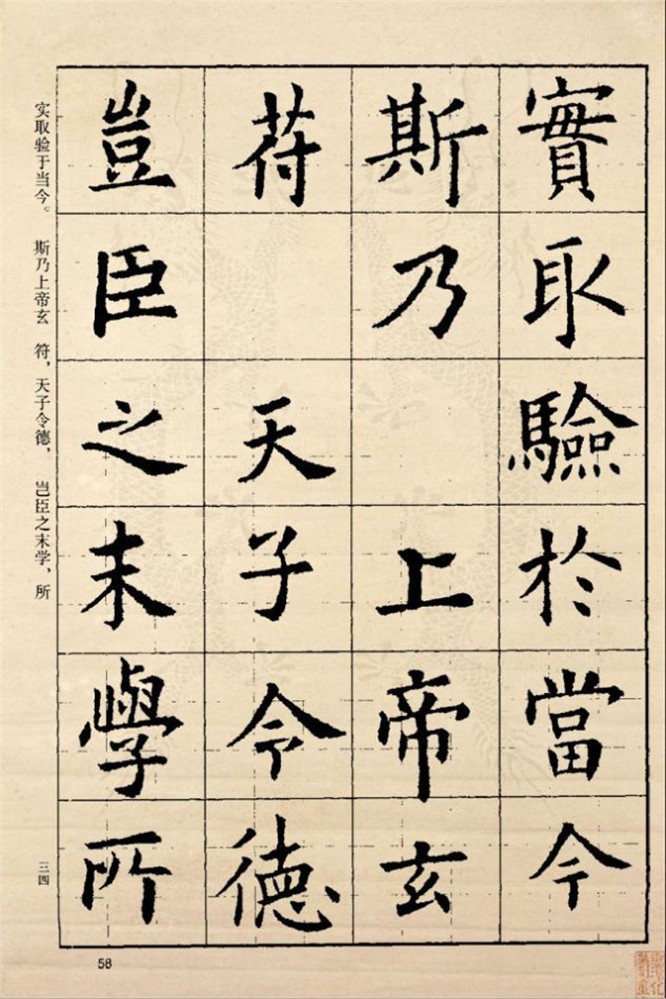 實取驗於當今
斯乃上帝玄
苻天子令德
豈臣之末學所
实取验于当今。 斯乃上帝玄 符，天子令德， 岂臣之末学，所
三四
58